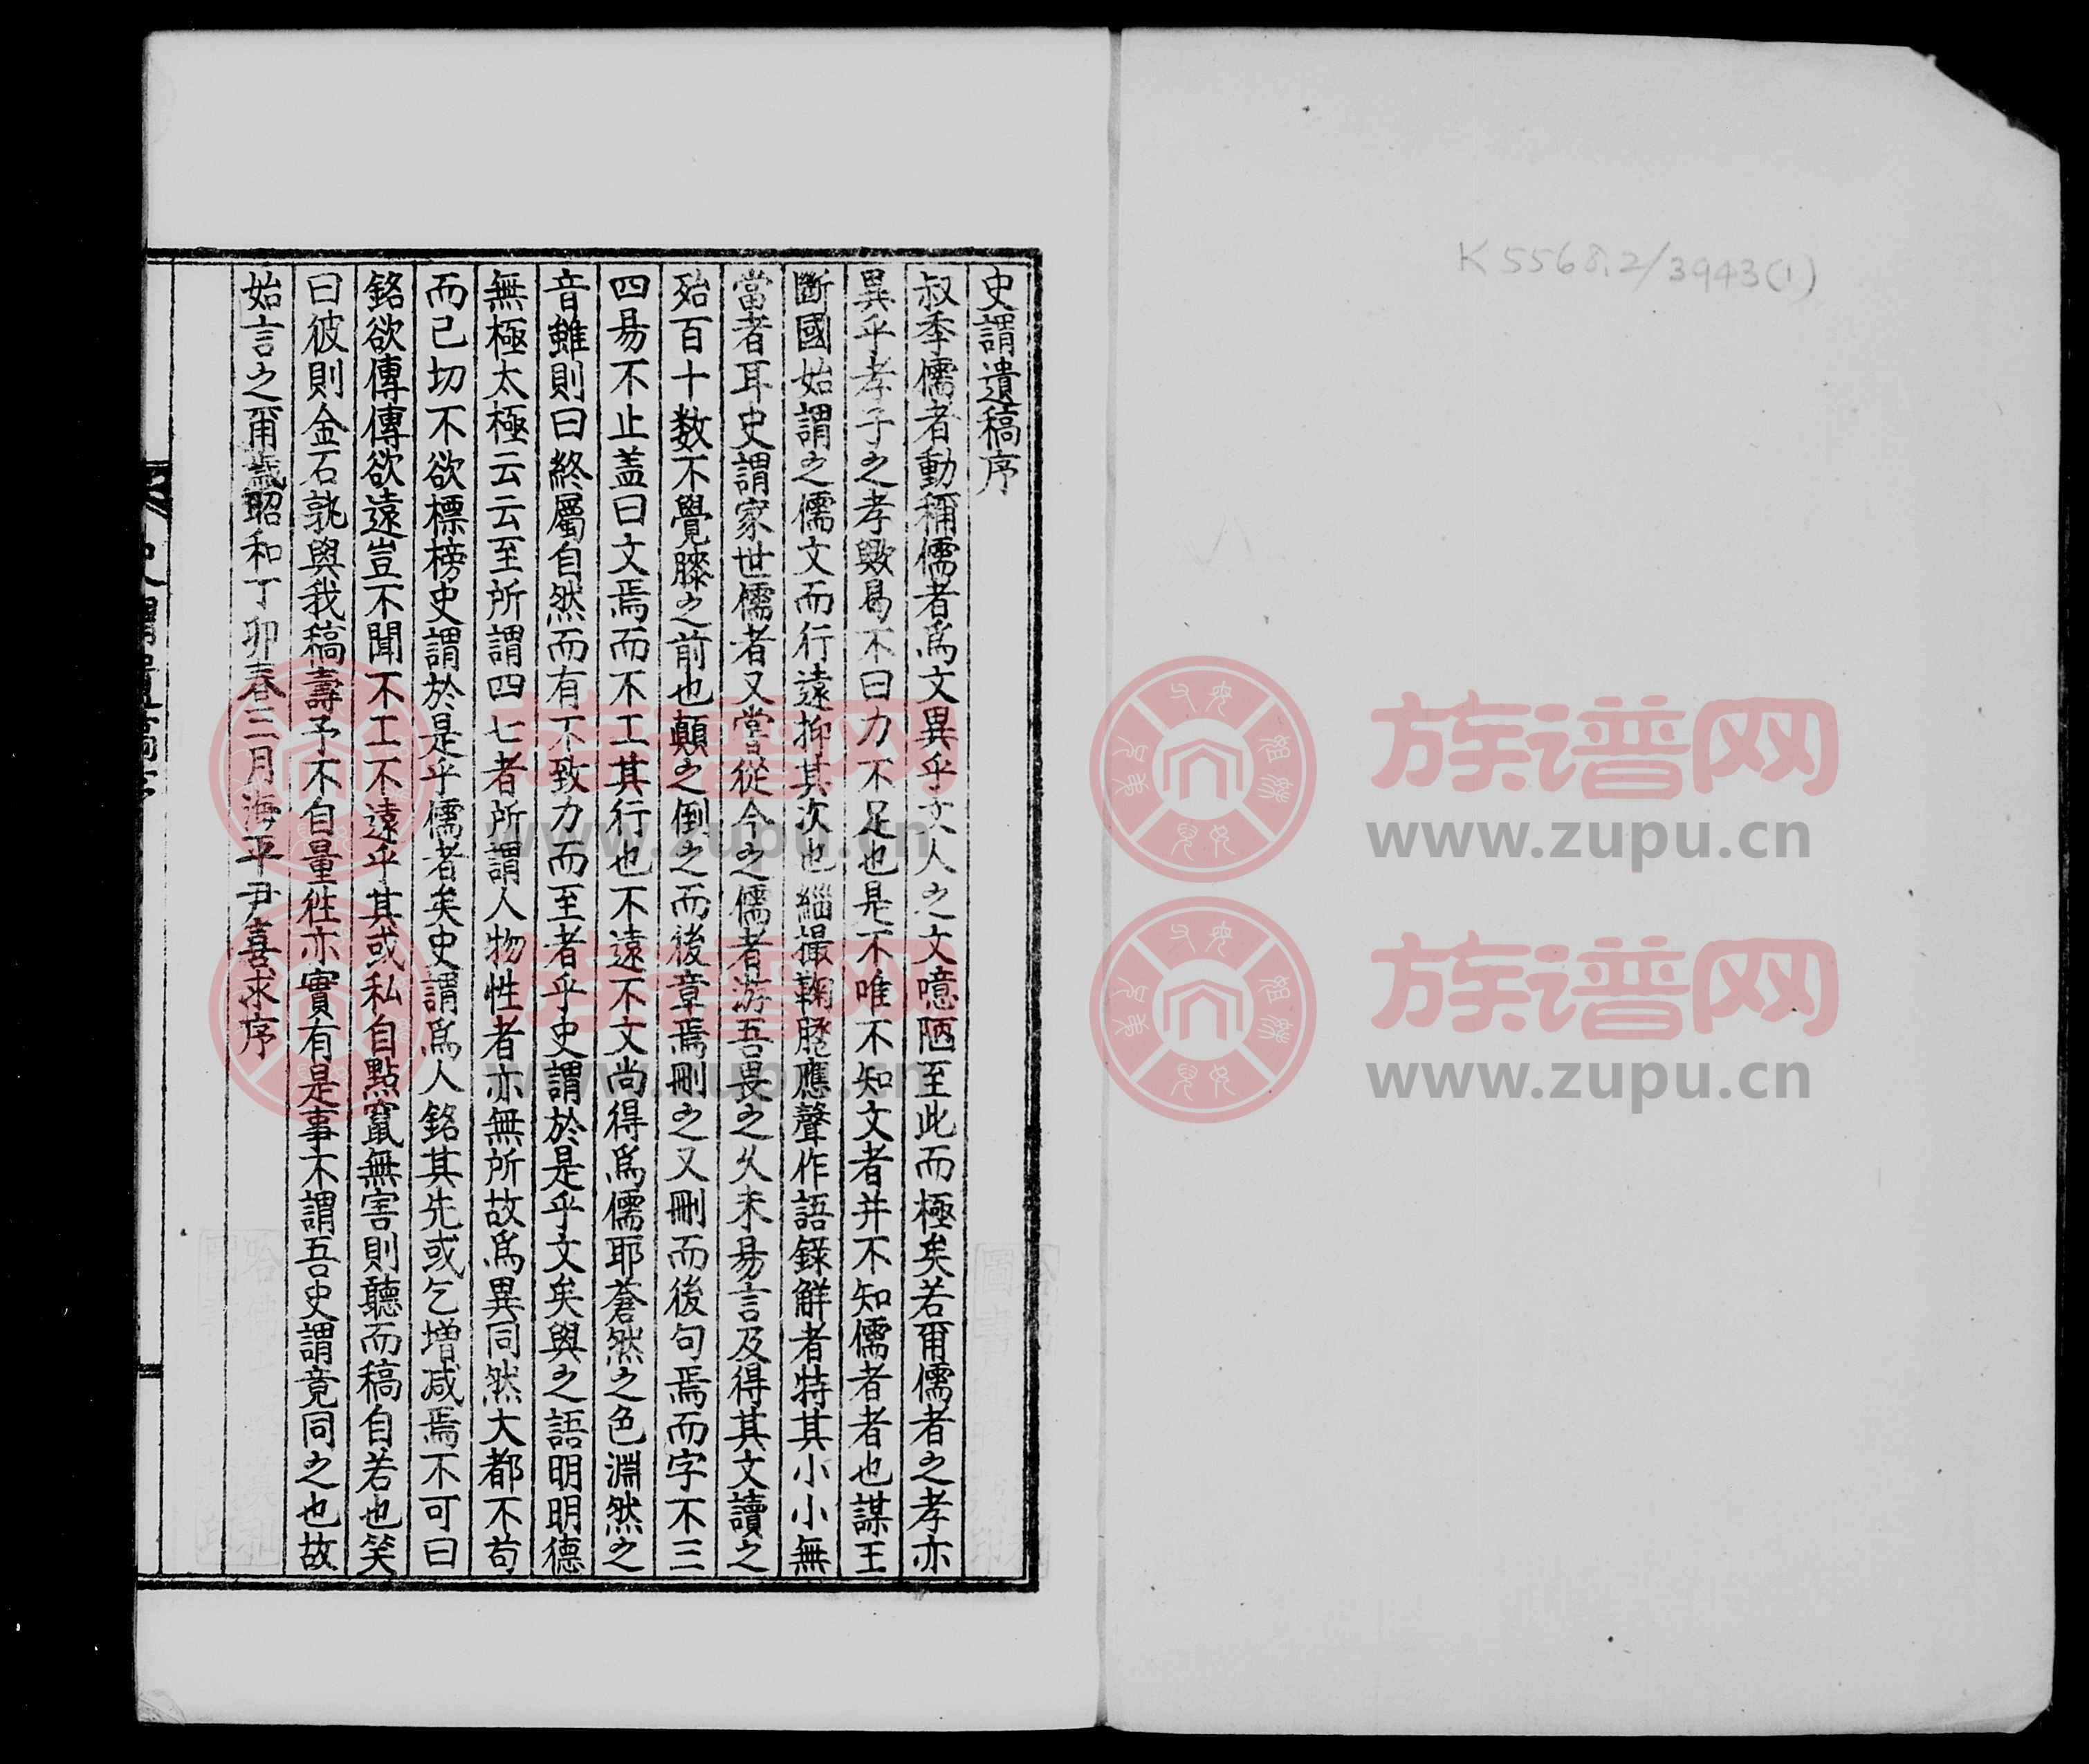 K5568.2/3943(1)
史謂遺稿序
叔季儒者動稱儒者爲文異乎文人之文噫陋至此而極矣若爾儒者之孝亦
異乎孝子之孝歟曷不曰力不足也是不唯不知文者并不知儒者者也謀王
斷國始謂之儒文而行遠抑其次也緇撮鞠䠆應聲作語錄解者特其小小無
當者耳史謂家世儒者又嘗從今之儒者游吾畏之久未易言及得其文讀之
殆百十数不覺膝之前也顛之倒之而後章焉刪之又刪而後句焉而字不三
四易不止盖曰文焉而不工其行也不遠不文尚得爲儒耶蒼然之色淵然之
音雖則曰終屬自然而有不致力而至者乎史謂於是乎文矣與之語明明德
無極太極云云至所謂四七者所謂人物性者亦無所故爲異同然大都不苟
而已切不欲標榜史謂於是乎儒者矣史謂爲人銘其先或乞增减焉不可曰
銘欲傳傳欲遠豈不聞不工不遠乎其或私自點竄無害則聽而稿自若也笑
曰彼則金石孰與我稿壽予不自量徃亦實有是事不謂吾史謂竟同之也故
始言之爾歲昭和丁卯春三月海平尹喜求序
族谱网
www.zupu.cn
族谱网
www.zupu.cn
族谱网
www.zupu.cn
族谱网
www.zupu.cn